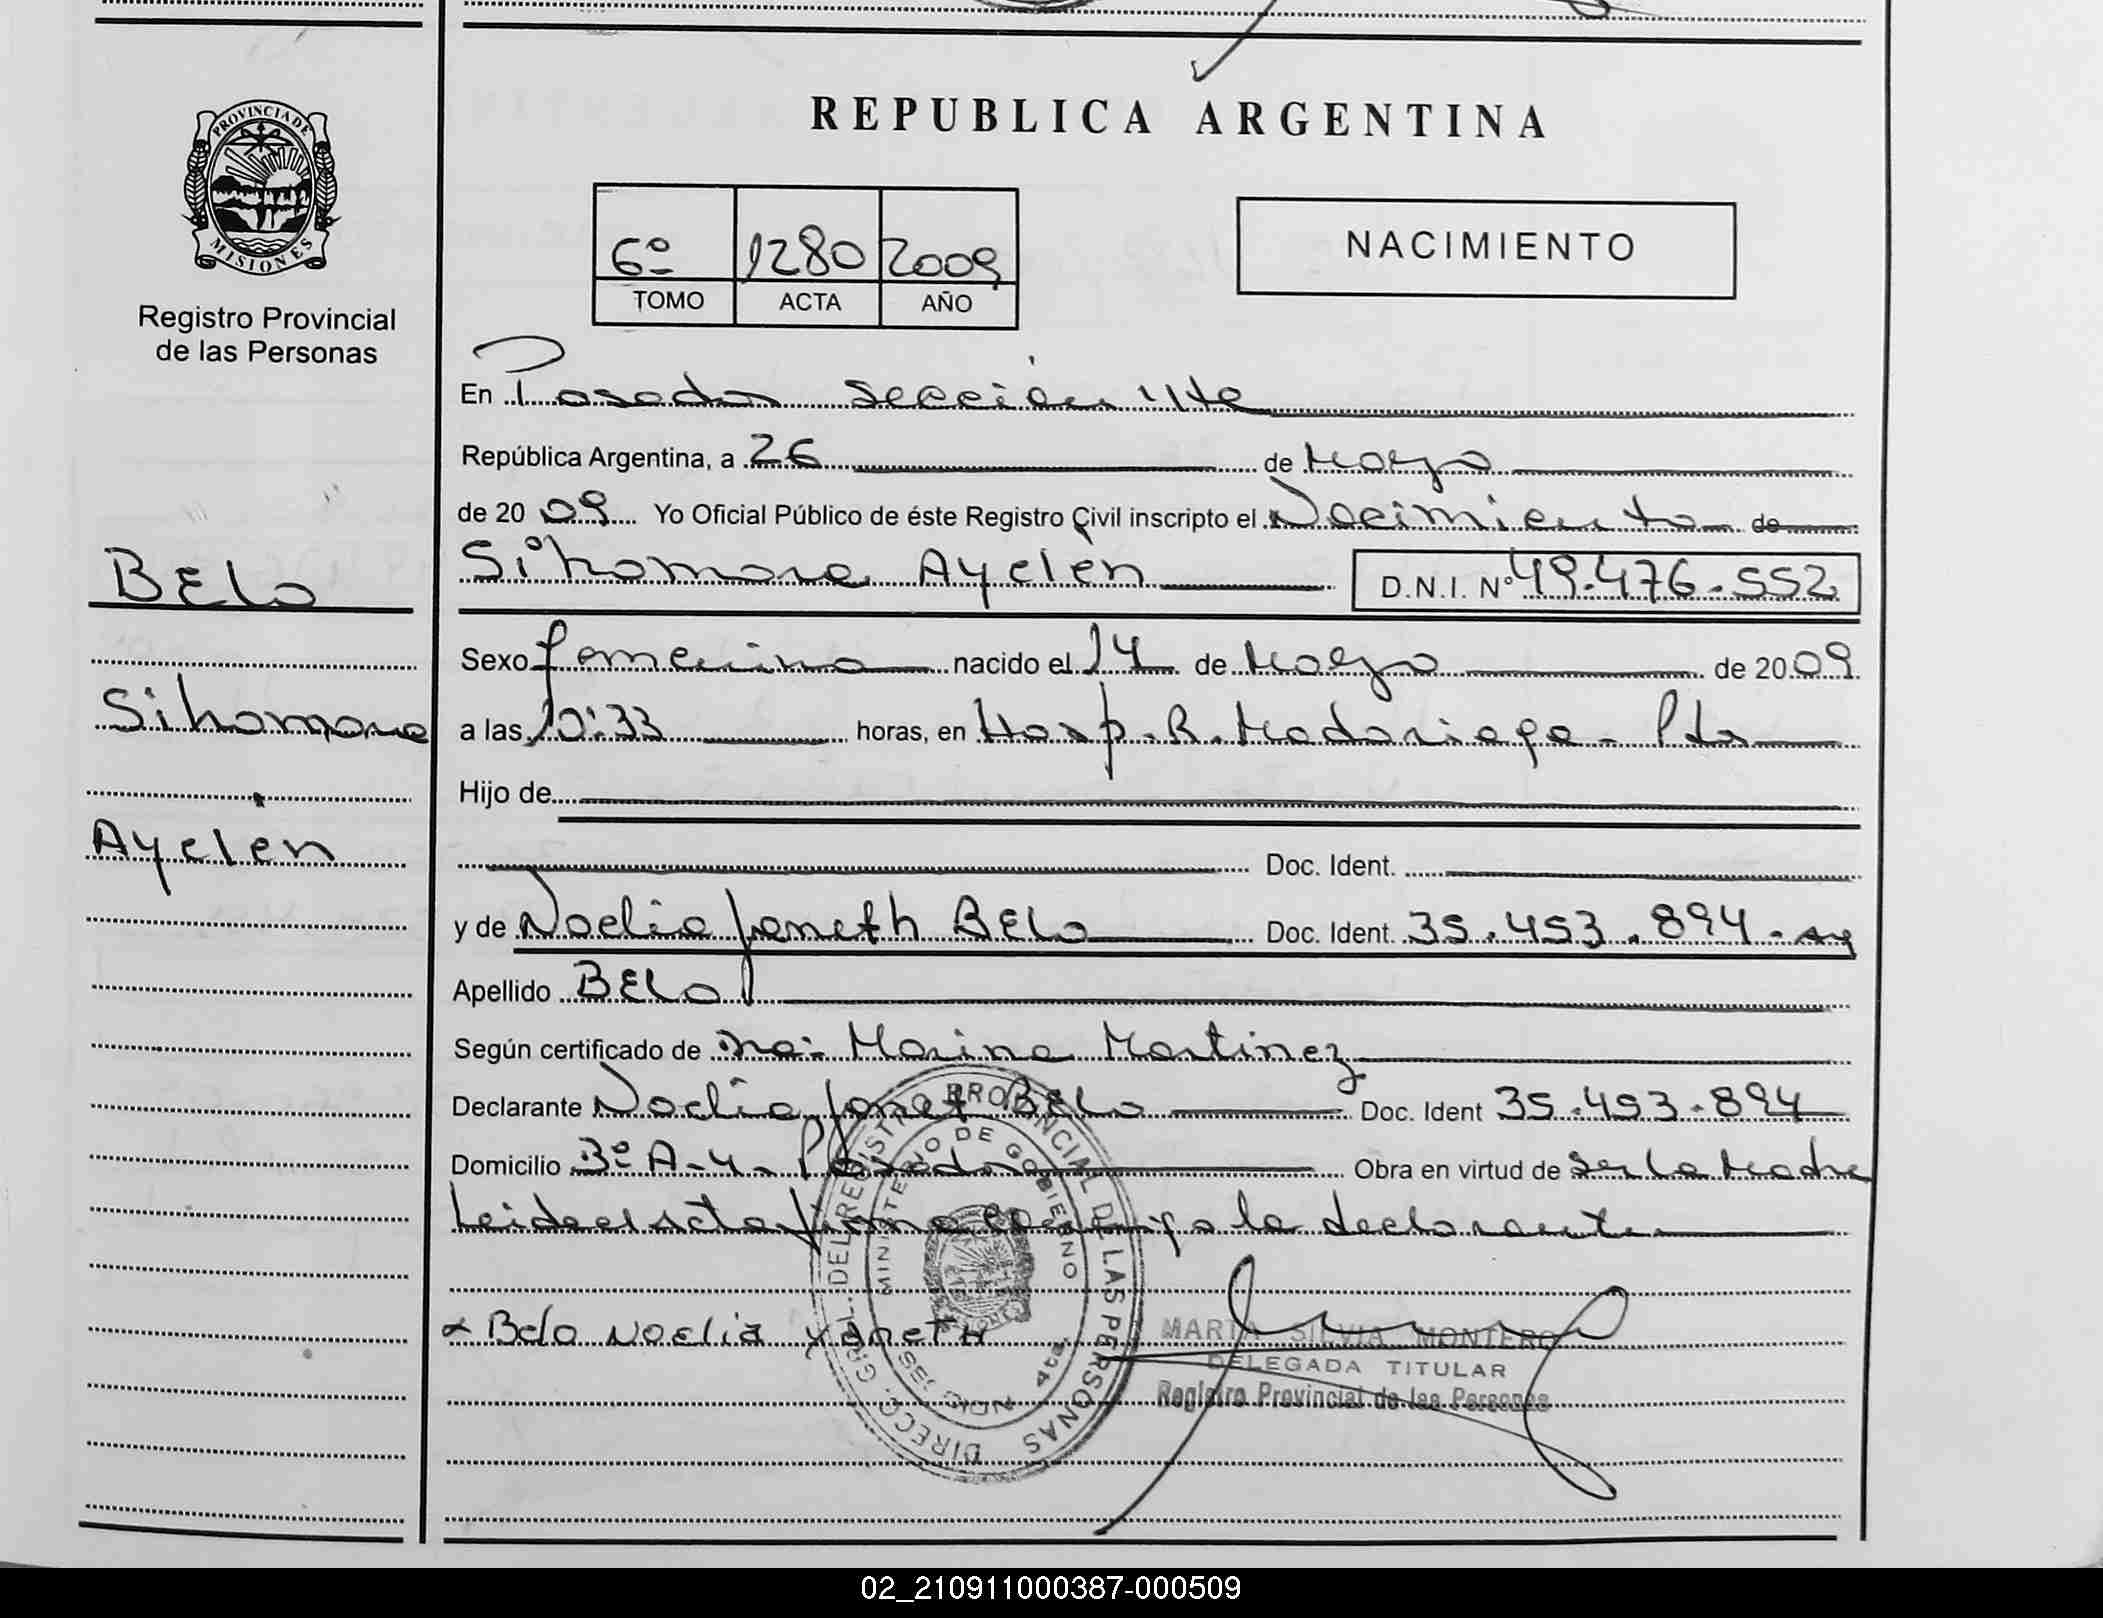 REPUBLICA ARGENTINA
PROVINCIA DE
MISIONES
Registro Provincial
de las Personas
6º 1280 2009
TOMO ACTA AÑO
NACIMIENTO
En Posadas sección 4te
República Argentina, a 26 de Mayo
de 2009 Yo Oficial Público de éste Registro Civil inscripto el Nacimiento de
Sihomara Ayelén D.N.I. Nº 49.476.552
Belo
Sihomara
Ayelén
Sexo femenino nacido el 14 de Mayo de 2009
a las 10:33 horas, en Hosp. R. Madariaga - Pdas
Hijo de
Doc. Ident.
y de Noelia Janeth Belo Doc. Ident. 35.453.894
Apellido Belo
Según certificado de Marina Martinez
Declarante Noelia Janet Belo Doc. Ident 35.453.894
Domicilio Bº A-4 - Posadas Obra en virtud de ser la Madre
Leída el Acta firma conmigo la declarante
Belo Noelia Yaneth
DIRECC. GRAL. DEL REGISTRO PROVINCIAL DE LAS PERSONAS
MINISTERIO DE GOBIERNO
MISIONES
4ta.
MARTA SILVIA MONTERO
DELEGADA TITULAR
Registro Provincial de las Personas
02_210911000387-000509